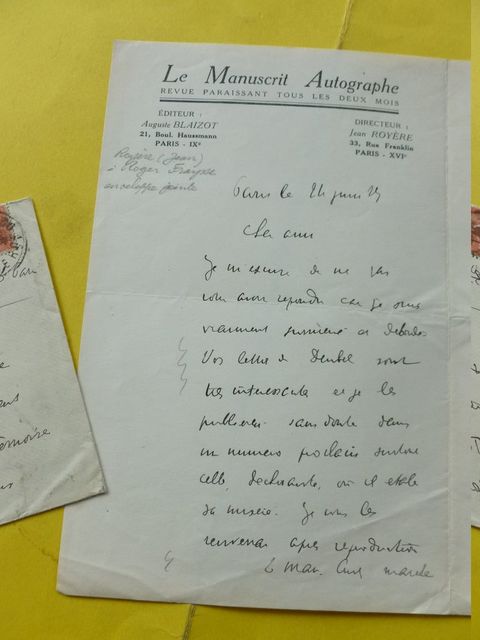 Le Manuscrit Autographe
REVUE PARAISSANT TOUS LES DEUX MOIS
ÉDITEUR :
Auguste BLAIZOT
21, Boul. Haussmann
PARIS - IXe
DIRECTEUR :
Jean ROYÈRE
33, Rue Franklin
PARIS - XVIe
Royère (Jean)
à Roger
enveloppe jointe
Paris le 24 juin
Cher ami
Je m'excuse de ne pas
vous avoir répondu car je suis
vraiment surmené et débordé
Vos lettres de sont
très intéressantes et je les
publierai sans doute dans
un numéro prochain surtout
celle, déchirante, où il étale
sa misère. Je vous les
renverrai après reproduction